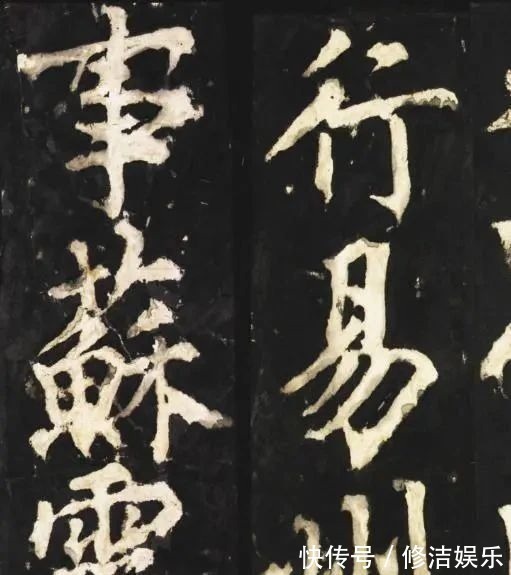 行易州
事蘇
快传号 / 修洁娱乐